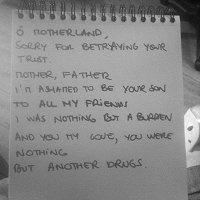 O MOTHERLAND,
SORRY FOR BETRAYING YOUR
TRUST.
MOTHER, FATHER
I'M ASHAMED TO BE YOUR SON
TO ALL MY FRIENDS
I WAS NOTHING BUT A BURDEN
AND YOU MY LOVE, YOU WERE
NOTHING
BUT ANOTHER DRUGS.